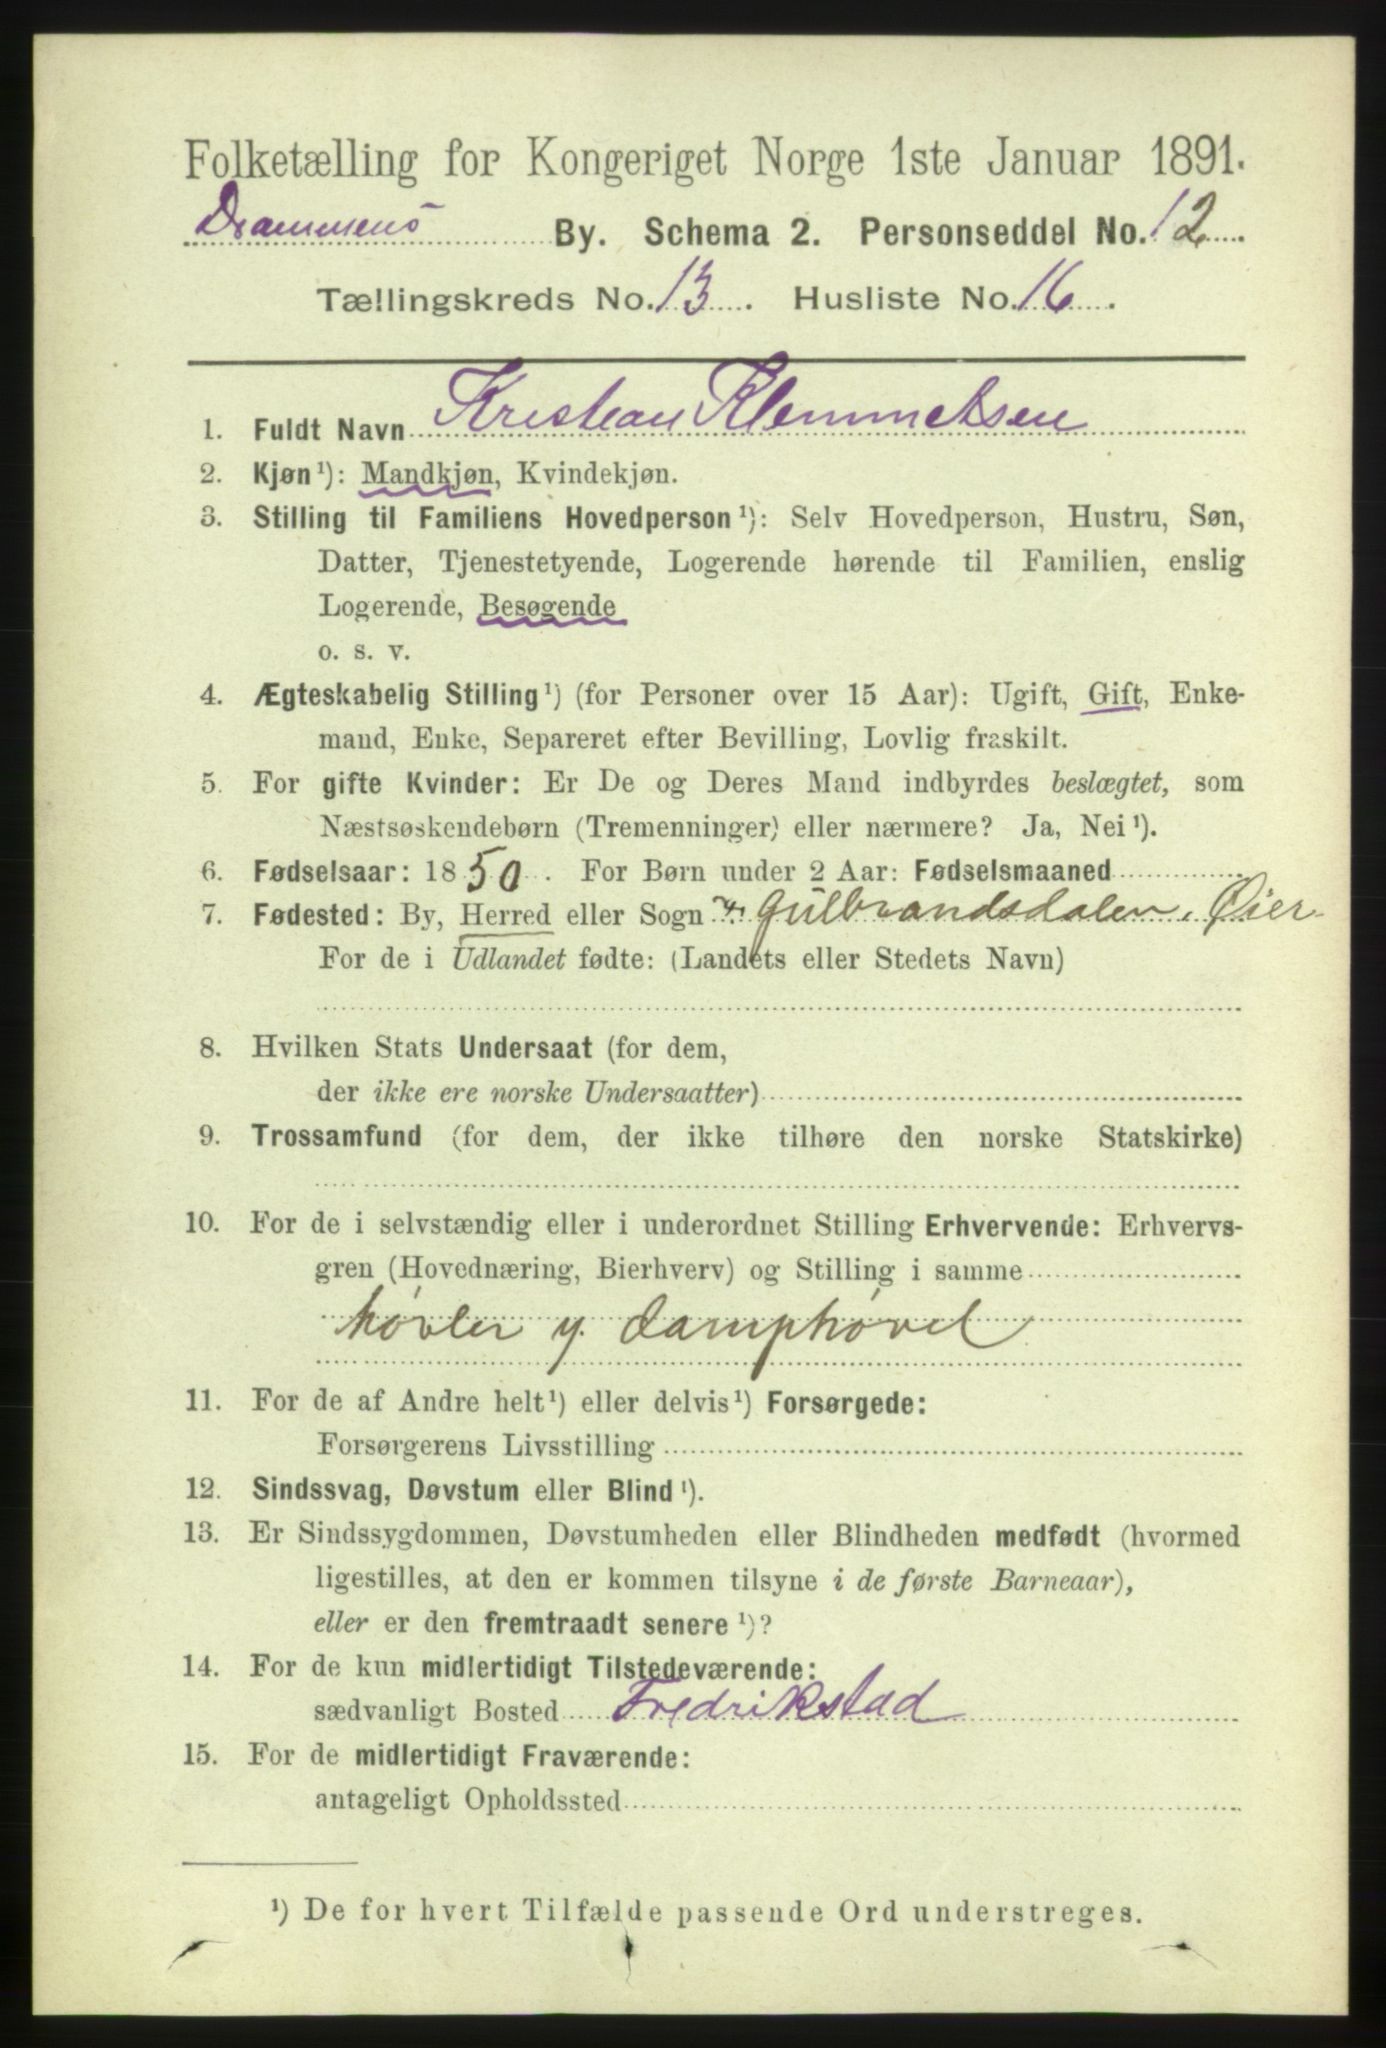 Folketælling for Kongeriget Norge 1ste Januar 1891.
Drammens By. Schema 2. Personseddel No. 12
Tællingskreds No. 13. Husliste No. 16.
1. Fuldt Navn Kristian Klemmetsen
2. Kjøn¹): Mandkjøn, Kvindekjøn.
3. Stilling til Familiens Hovedperson¹): Selv Hovedperson, Hustru, Søn,
Datter, Tjenestetyende, Logerende hørende til Familien, enslig
Logerende, Besøgende
o. s. v.
4. Ægteskabelig Stilling¹) (for Personer over 15 Aar): Ugift, Gift, Enke-
mand, Enke, Separeret efter Bevilling, Lovlig fraskilt.
5. For gifte Kvinder: Er De og Deres Mand indbyrdes beslægtet, som
Næstsøskendebørn (Tremenninger) eller nærmere? Ja, Nei¹).
6. Fødselsaar: 1850. For Børn under 2 Aar: Fødselsmaaned
7. Fødested: By, Herred eller Sogn Gulbrandsdalen, Øier
For de i Udlandet fødte: (Landets eller Stedets Navn)
8. Hvilken Stats Undersaat (for dem,
der ikke ere norske Undersaatter)
9. Trossamfund (for dem, der ikke tilhøre den norske Statskirke)
10. For de i selvstændig eller i underordnet Stilling Erhvervende: Erhvervs-
gren (Hovednæring, Bierhverv) og Stilling i samme
høvler y. damphøvel
11. For de af Andre helt¹) eller delvis¹) Forsørgede:
Forsørgerens Livsstilling
12. Sindssvag, Døvstum eller Blind¹).
13. Er Sindssygdommen, Døvstumheden eller Blindheden medfødt (hvormed
ligestilles, at den er kommen tilsyne i de første Barneaar),
eller er den fremtraadt senere¹)?
14. For de kun midlertidigt Tilstedeværende:
sædvanligt Bosted Fredrikstad
15. For de midlertidigt Fraværende:
antageligt Opholdssted
¹) De for hvert Tilfælde passende Ord understreges.